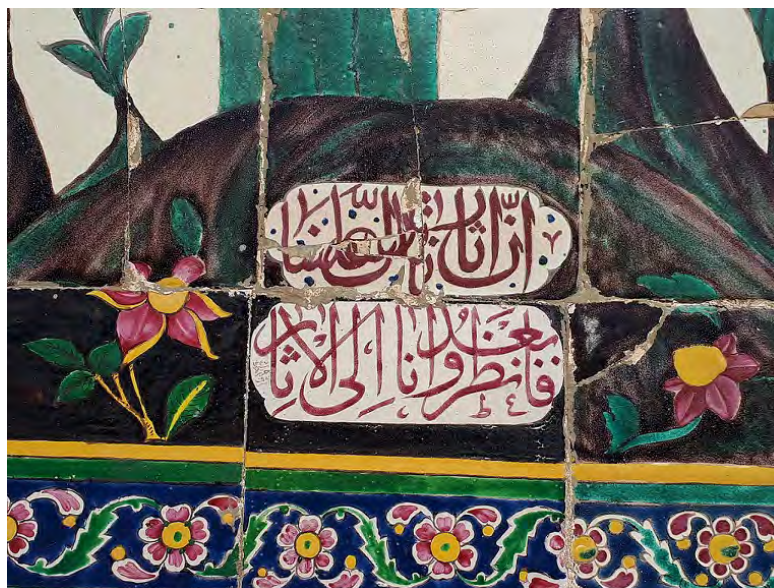 انّ اثارنا تدلّ علینا
فانظروا بعدنا الی الاثار